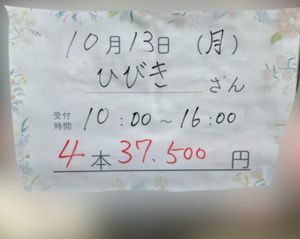 10月13日 (月)
ひびき さん
受付時間 10:00~16:00
4本 37.500円